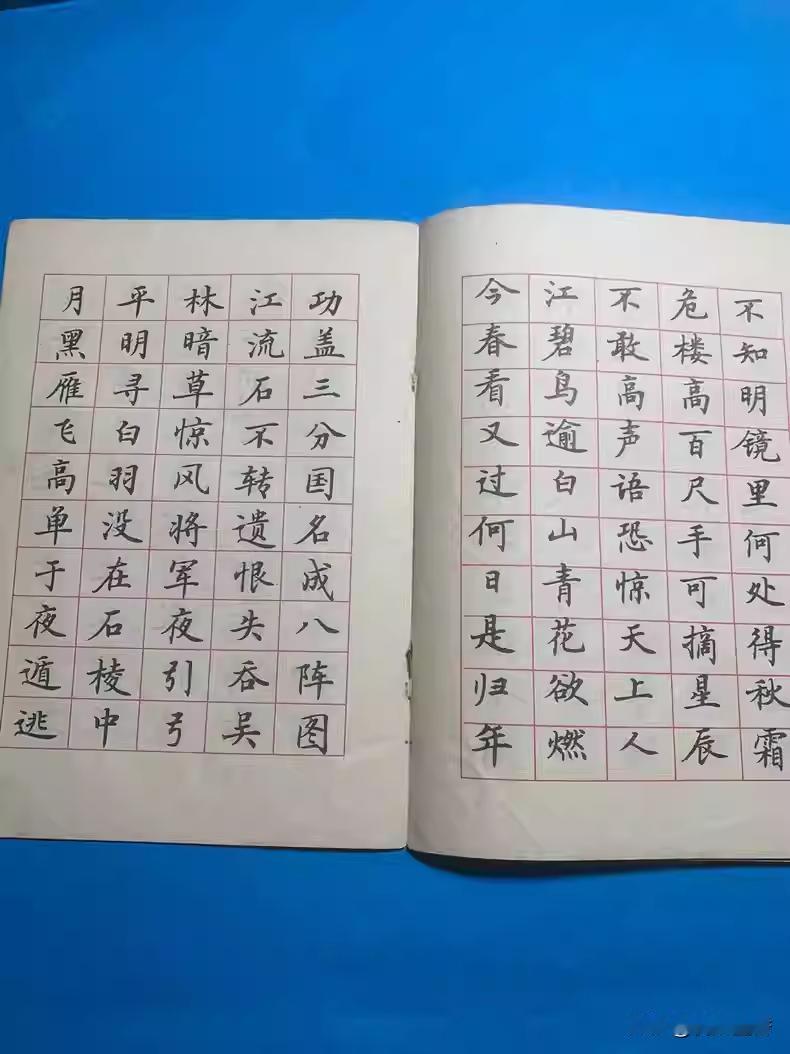 不知明镜里何处得秋霜
危楼高百尺手可摘星辰
不敢高声语恐惊天上人
江碧鸟逾白山青花欲燃
今春看又过何日是归年
功盖三分国名成八阵图
江流石不转遗恨失吞吴
林暗草惊风将军夜引弓
平明寻白羽没在石棱中
月黑雁飞高单于夜遁逃